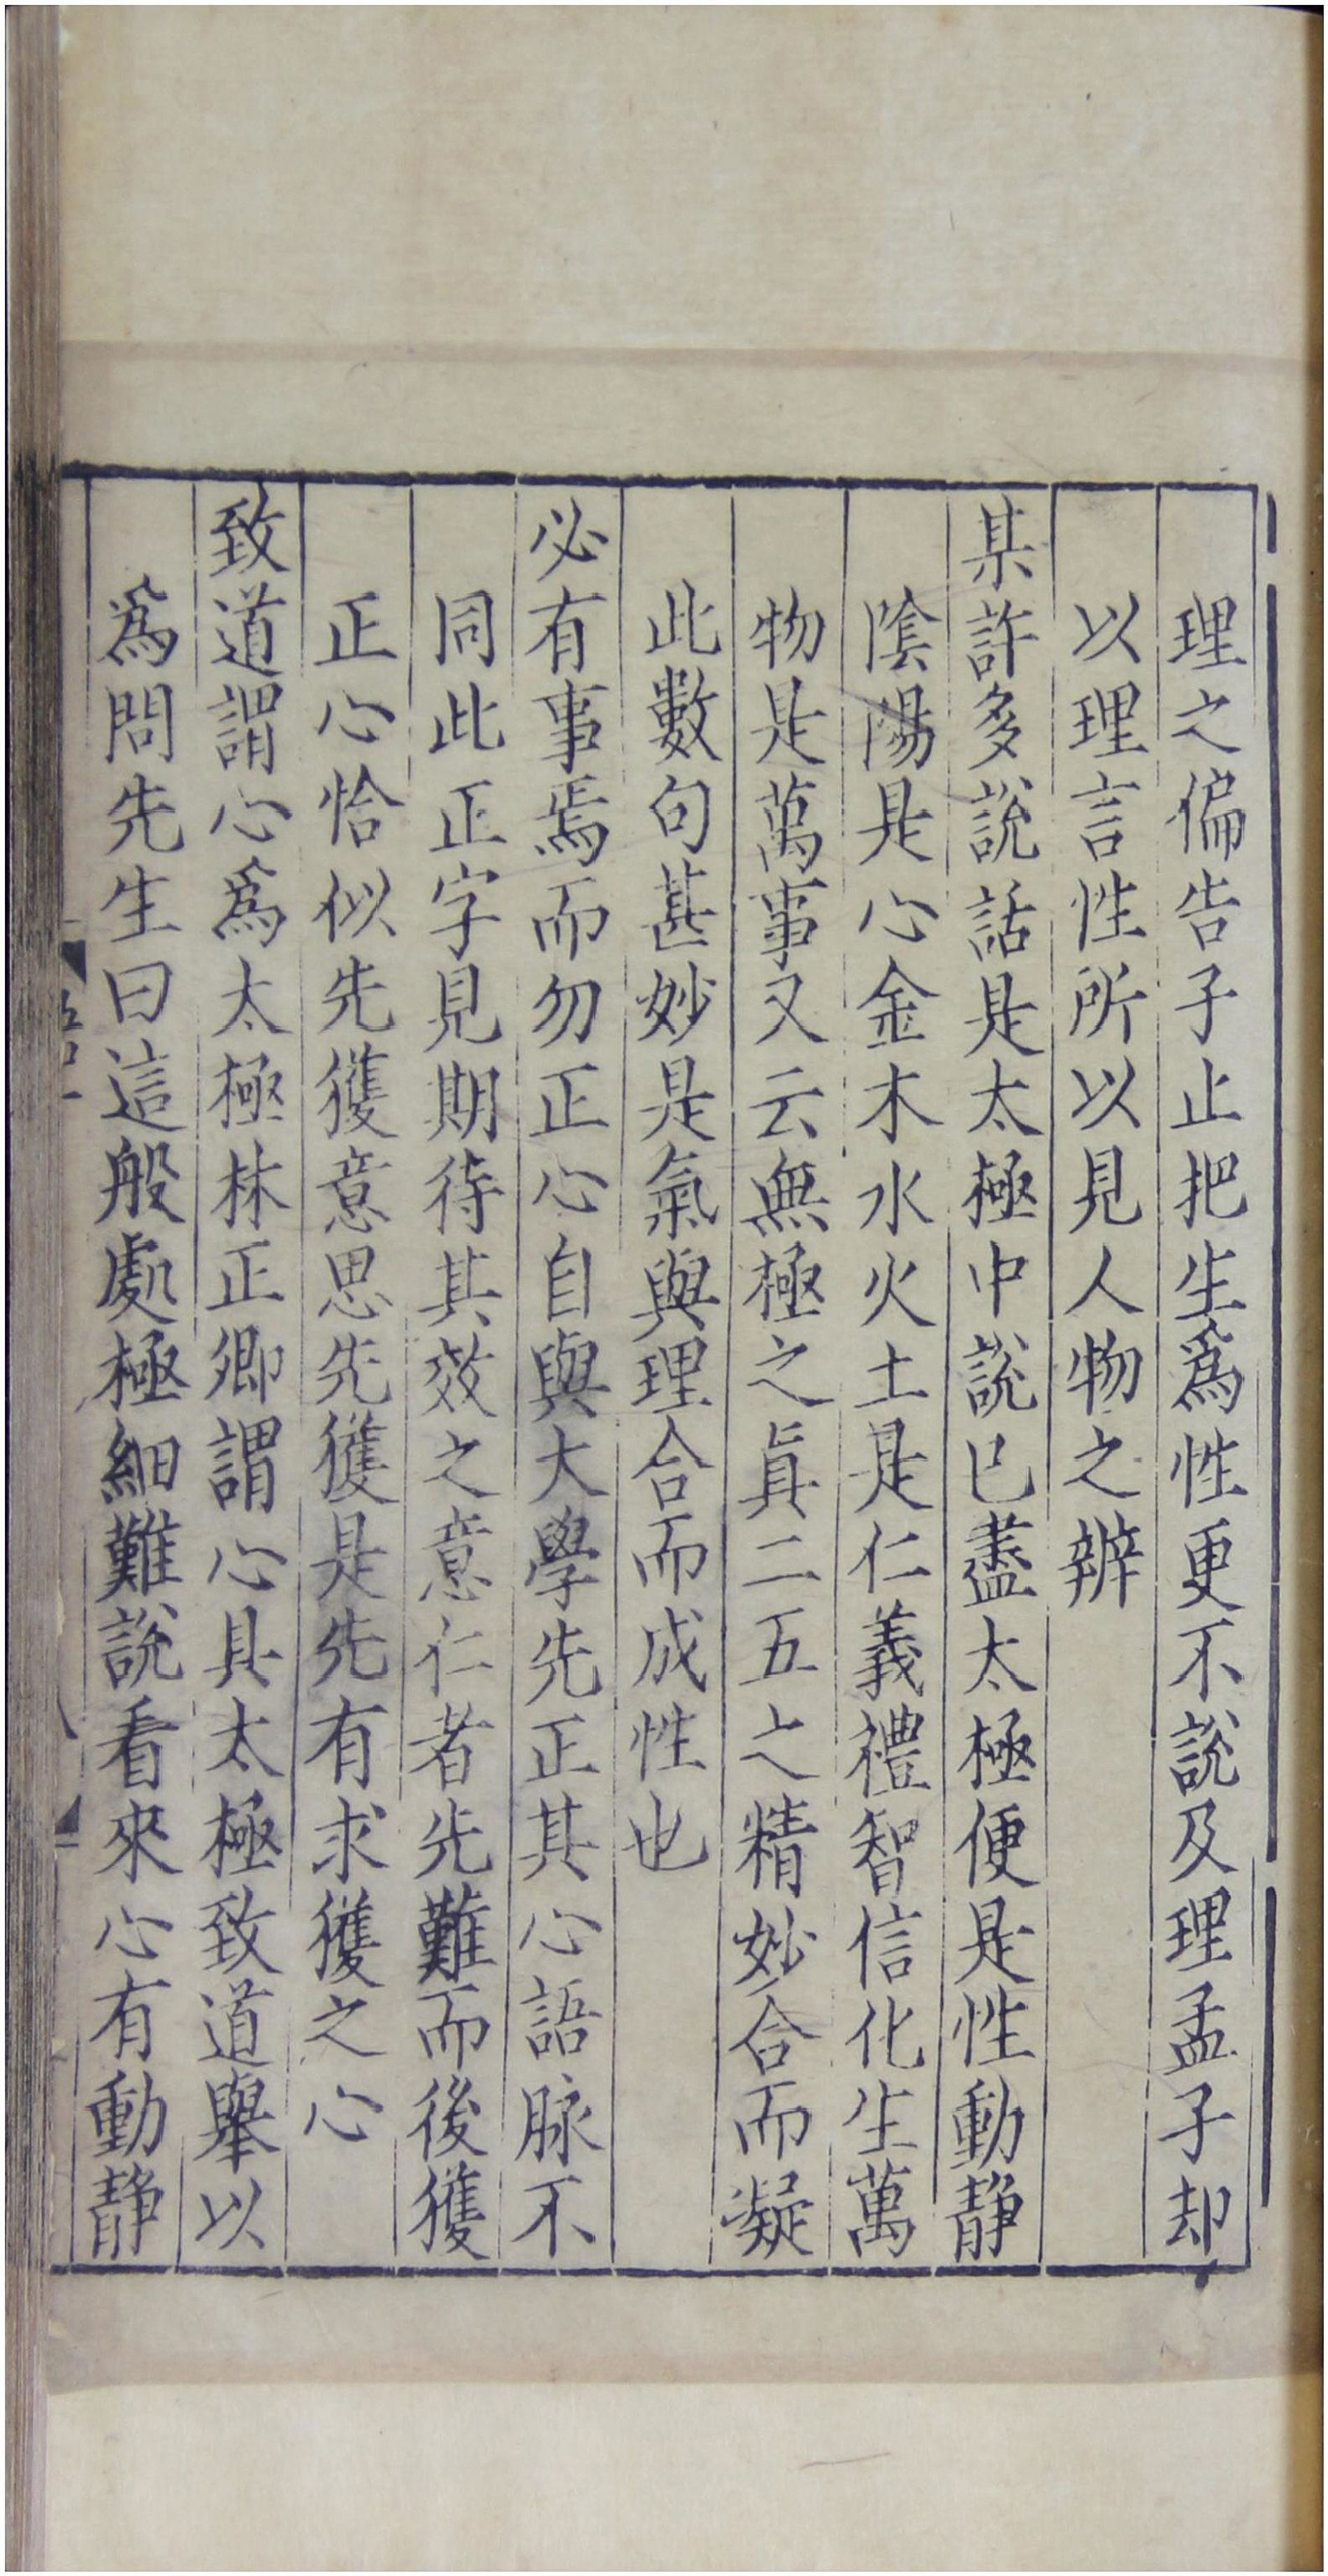 理之偏告子止把生爲性更不說及理孟子却
以理言性所以見人物之辨
某許多說話是太極中說已盡太極便是性動靜
陰陽是心金木水火土是仁義禮智信化生萬
物是萬事又云無極之眞二五之精妙合而凝
此數句甚妙是氣與理合而成性也
必有事焉而勿正心自與大學先正其心語脉不
同此正字見期待其效之意仁者先難而後獲
正心恰似先獲意思先獲是先有求獲之心
致道謂心爲太極林正卿謂心具太極致道舉以
爲問先生曰這般處極細難說看來心有動靜